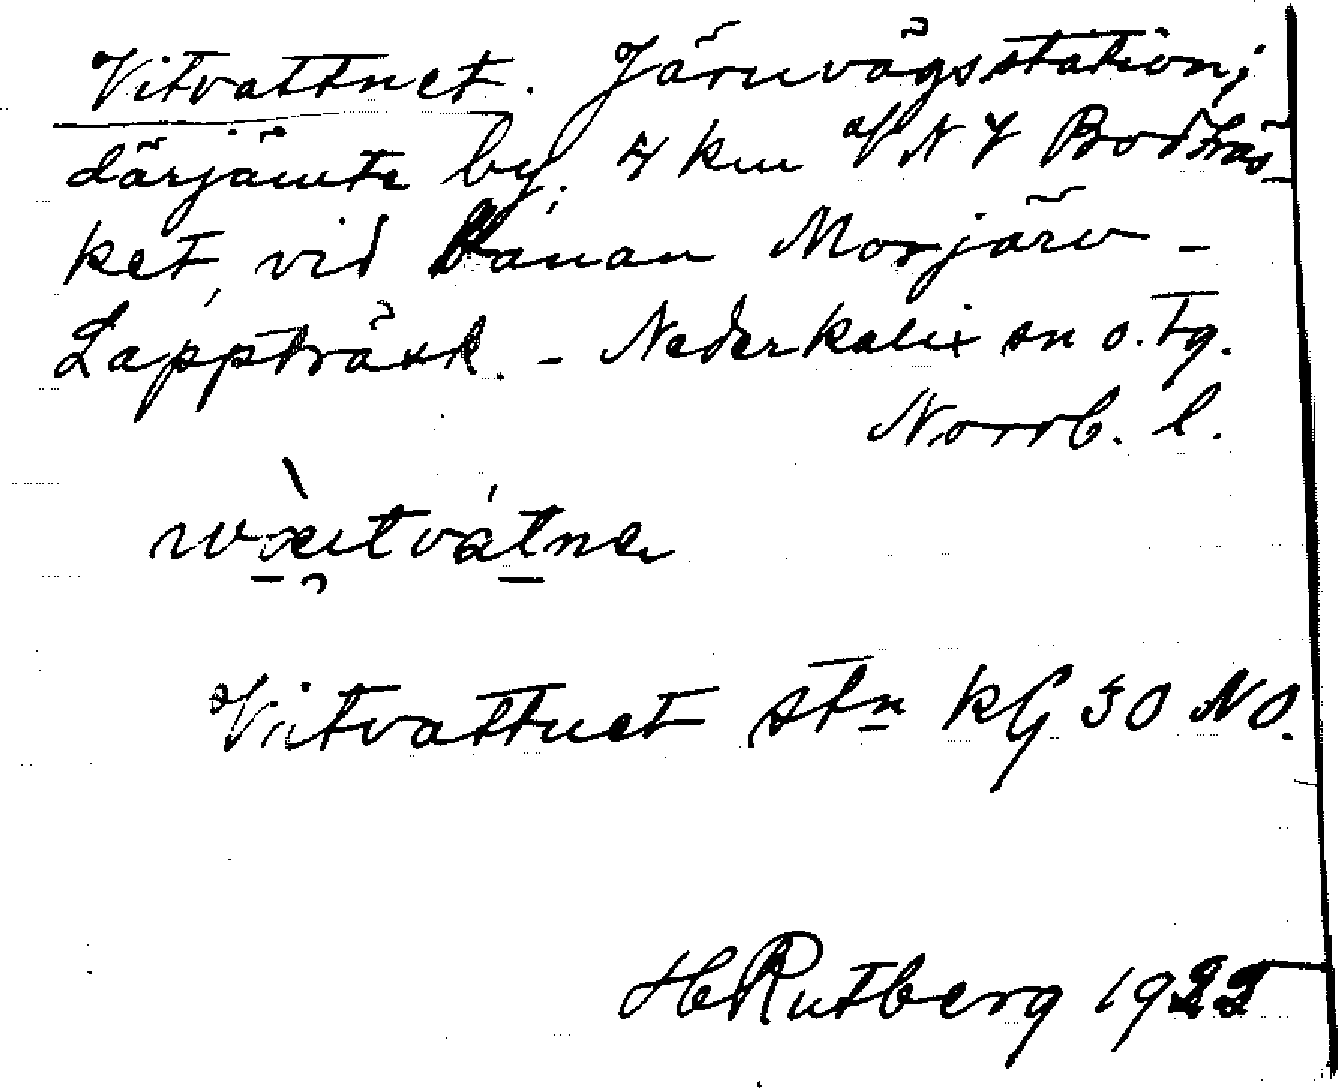 Vitvattnet. Järnvägsstation;
därjämte by. 4 km VNV Bodträs-
ket, vid banan Morjärv -
Lappträsk. - Nederkalix sn o. tg.
Norrb. l.
wæ̀itvátnə
Vitvattnet stn kG 30 NO.
HRutberg 1922